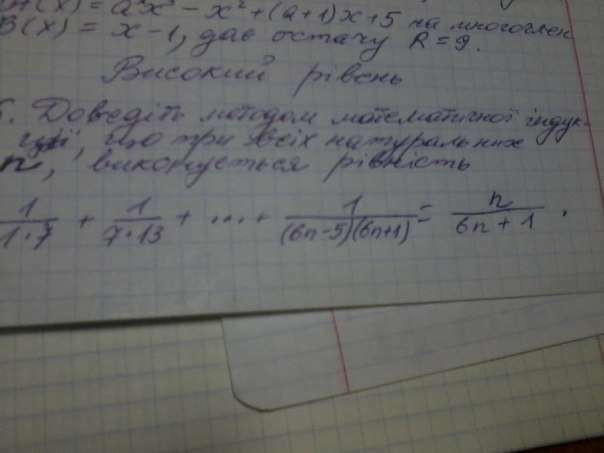 A(x) = a²x³ - x² + (a+1)x + 5 на многочлен
B(x) = x - 1, дає остачу R = 9.
Високий рівень
Доведіть методом математичної індук-
ції, що при всіх натуральних
n, виконується рівність
1/(1·7) + 1/(7·13) + .... + 1/((6n-5)(6n+1)) = n/(6n+1) .